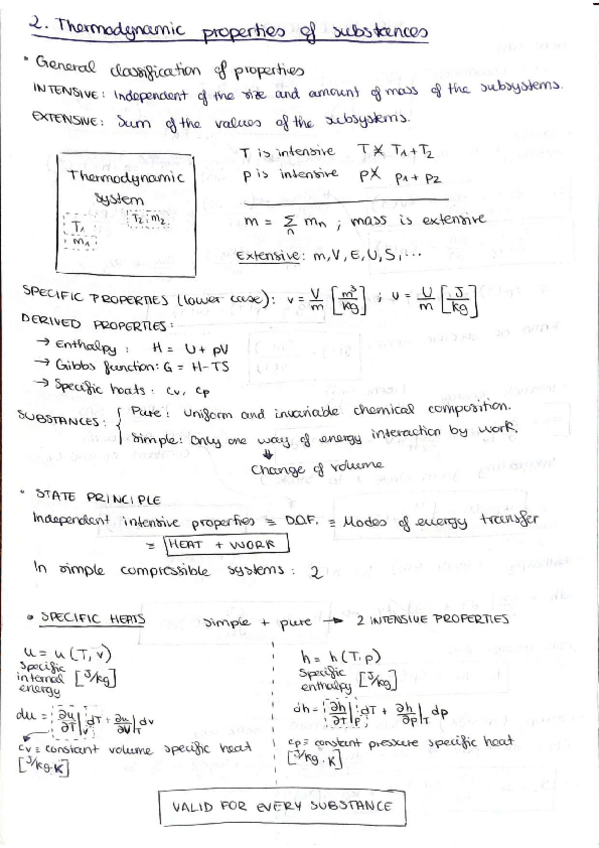 2. Thermodynamic properties of substances
• General classification of properties
INTENSIVE: Independent of the size and amount of mass of the subsystems.
EXTENSIVE: Sum of the values of the subsystems.
Thermodynamic system
T₁
m₁
T₂ m₂
T is intensive T ≠ T₁+T₂
p is intensive p ≠ p₁+p₂
m = Σₙ mₙ ; mass is extensive
Extensive: m, V, E, U, S, ...
SPECIFIC PROPERTIES (lower case): v = V/m [m³/kg] ; u = U/m [J/kg]
DERIVED PROPERTIES:
→ Enthalpy: H = U + pV
→ Gibbs function: G = H-TS
→ Specific heats: cv, cp
SUBSTANCES: { Pure: Uniform and invariable chemical composition.
Simple: Only one way of energy interaction by work.
⇓
Change of volume
• STATE PRINCIPLE
Independent intensive properties ≡ D.O.F. ≡ Modes of energy transfer
≡ HEAT + WORK
In simple compressible systems: 2
• SPECIFIC HEATS simple + pure → 2 INTENSIVE PROPERTIES
u = u (T, v)
Specific internal energy [J/kg]
du = ∂u/∂T|v dT + ∂u/∂v|T dv
cv ≡ constant volume specific heat
[J/kg·K]
h = h (T, p)
Specific enthalpy [J/kg]
dh = ∂h/∂T|p dT + ∂h/∂p|T dp
cp ≡ constant pressure specific heat
[J/kg·K]
VALID FOR EVERY SUBSTANCE